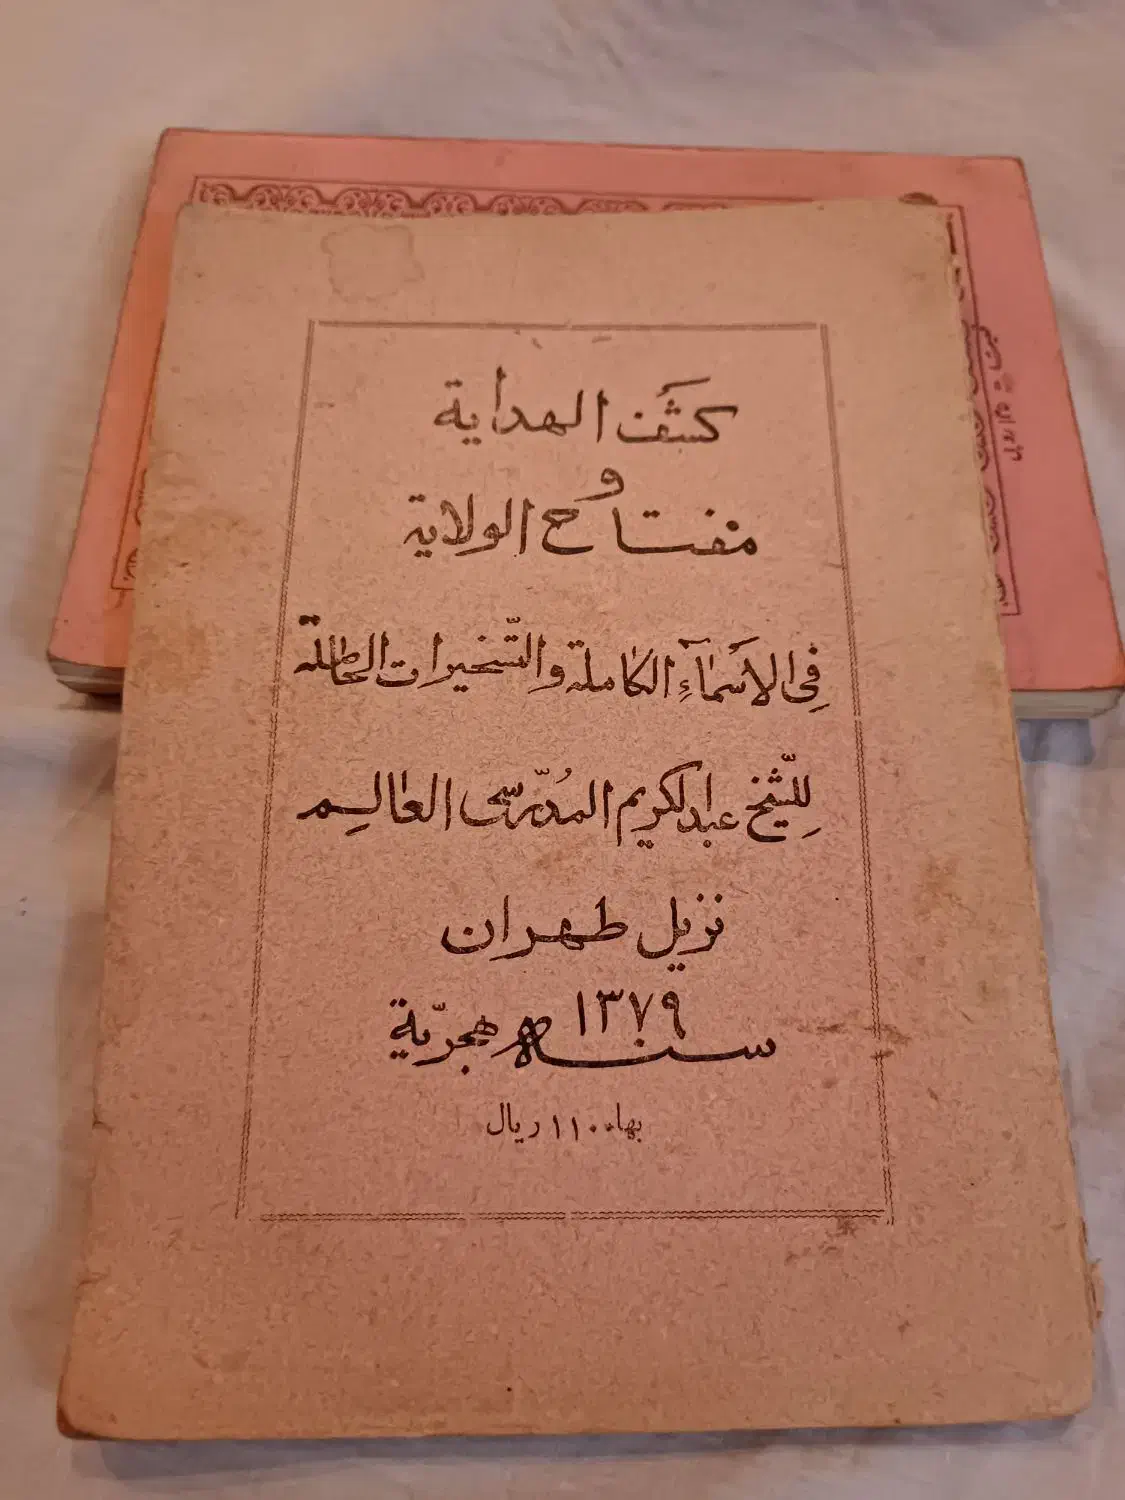 كشف الهداية
و
مفتاح الولاية
في الأسماء الكاملة والتسخيرات
للشيخ عبدالكريم المدرسي العالم
نزيل طهران
سنه ١٣٧٩ هجرية
بها ١١٠٠ ريال